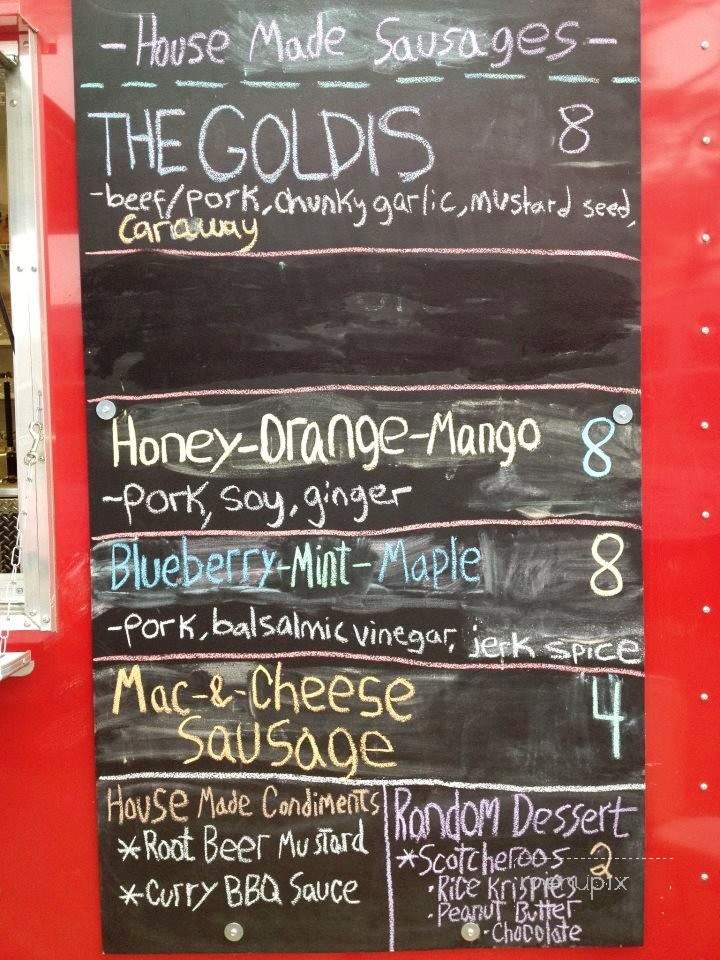 -House Made Sausages-
THE GOLDIS 8
-beef/pork, chunky garlic, mustard seed,
caraway
Honey-Orange-Mango 8
-pork, soy, ginger
Blueberry-Mint-Maple 8
-pork, balsalmic vinegar, jerk spice
Mac-&-Cheese 4
Sausage
House Made Condiments
*Root Beer Mustard
*Curry BBQ Sauce
Random Dessert
*Scotcheroos 2
·Rice Krispies
·Peanut Butter
·Chocolate
menupix